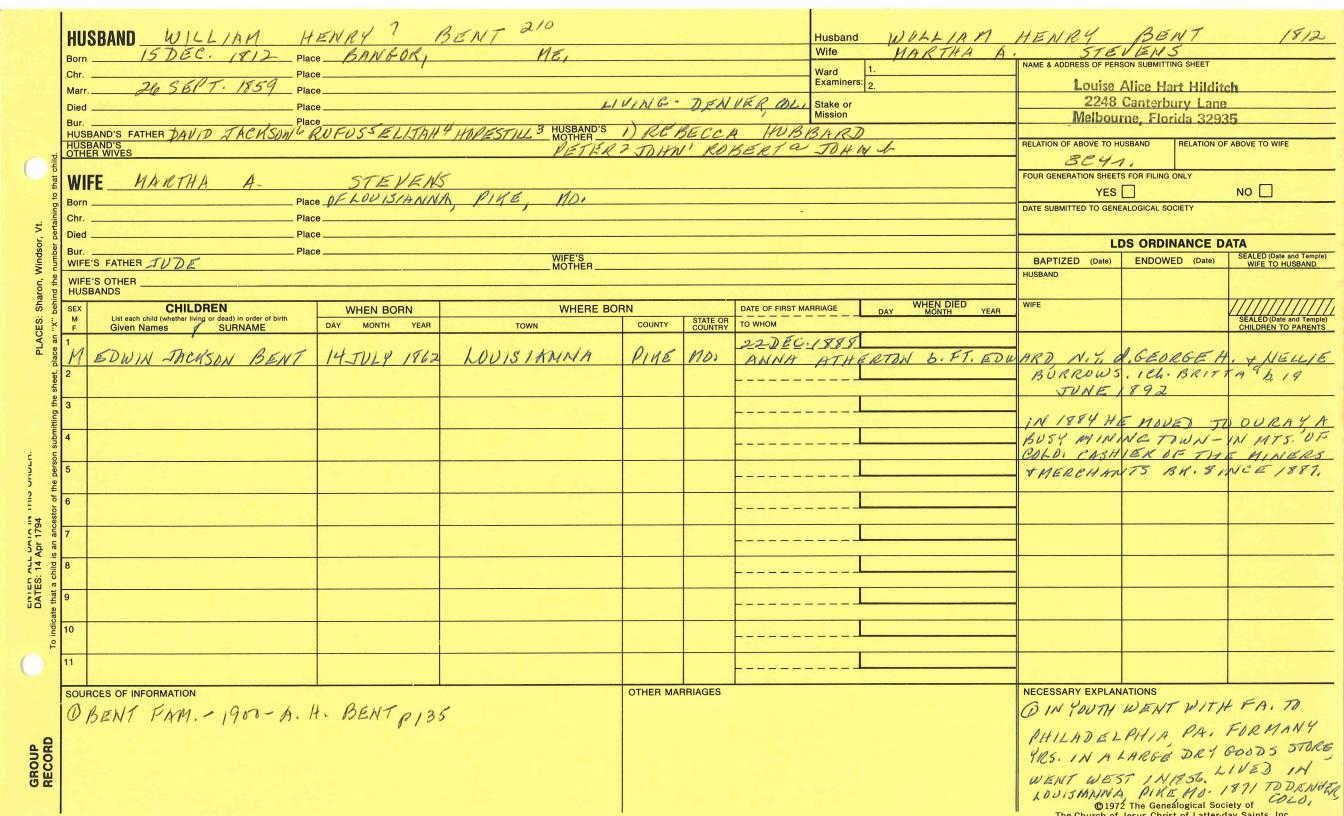 HUSBAND WILLIAM HENRY 7 BENT 210
Born 15 DEC. 1812 Place BANGOR, ME.
Chr. Place
Marr. 26 SEPT. 1859 Place
Died Place LIVING - DENVER, COL.
Bur. Place
HUSBAND'S FATHER DAVID JACKSON 6 RUFUS 5 ELIJAH 4 HOPESTILL 3 HUSBAND'S MOTHER 1) REBECCA HUBBARD
HUSBAND'S OTHER WIVES PETER 2 JOHN 1 ROBERT a JOHN b
WIFE MARTHA A. STEVENS
Born Place OF LOUISIANNA, PIKE, MO.
Chr. Place
Died Place
Bur. Place
WIFE'S FATHER JUDE WIFE'S MOTHER
WIFE'S OTHER HUSBANDS
Husband WILLIAM HENRY BENT 1812
Wife MARTHA A. STEVENS
Ward Examiners: 1.
2.
Stake or Mission
NAME & ADDRESS OF PERSON SUBMITTING SHEET
Louise Alice Hart Hilditch
2248 Canterbury Lane
Melbourne, Florida 32935
RELATION OF ABOVE TO HUSBAND RELATION OF ABOVE TO WIFE
FOUR GENERATION SHEETS FOR FILING ONLY
YES NO
DATE SUBMITTED TO GENEALOGICAL SOCIETY
LDS ORDINANCE DATA
BAPTIZED (Date) ENDOWED (Date) SEALED (Date and Temple) WIFE TO HUSBAND
HUSBAND
WIFE
SEALED (Date and Temple) CHILDREN TO PARENTS
SEX M F
CHILDREN
List each child (whether living or dead) in order of birth
Given Names SURNAME
WHEN BORN
DAY MONTH YEAR
WHERE BORN
TOWN COUNTY STATE OR COUNTRY
DATE OF FIRST MARRIAGE
TO WHOM
WHEN DIED
DAY MONTH YEAR
1 22 DEC. 1888
M EDWIN JACKSON BENT 14 JULY 1862 LOUISIANNA PIKE MO. ANNA ATHERTON b. FT. EDWARD N.Y. d. GEORGE H. & NELLIE
BURROWS. 1 ch. BRITTA 9 b. 19
JUNE 1892
IN 1884 HE MOVED TO OURAY, A
BUSY MINING TOWN - IN MTS. OF
COLO. CASHIER OF THE MINERS
& MERCHANTS BK. SINCE 1887.
2
3
4
5
6
7
8
9
10
11
SOURCES OF INFORMATION
① BENT FAM. - 1900 - A. H. BENT p 135
OTHER MARRIAGES
NECESSARY EXPLANATIONS
① IN YOUTH WENT WITH FA. TO
PHILADELPHIA, PA. FOR MANY
YRS. IN A LARGE DRY GOODS STORE,
WENT WEST IN 1856. LIVED IN
LOUISIANNA, PIKE, MO. 1871 TO DENVER,
COLO.
©1972 The Genealogical Society of
The Church of Jesus Christ of Latter-day Saints, Inc.
PLACES: Sharon, Windsor, Vt.
ENTER ALL DATA IN THIS ORDER:
DATES: 14 Apr 1794
To indicate that a child is an ancestor of the person submitting the sheet, place an "X" behind the number pertaining to that child.
GROUP RECORD